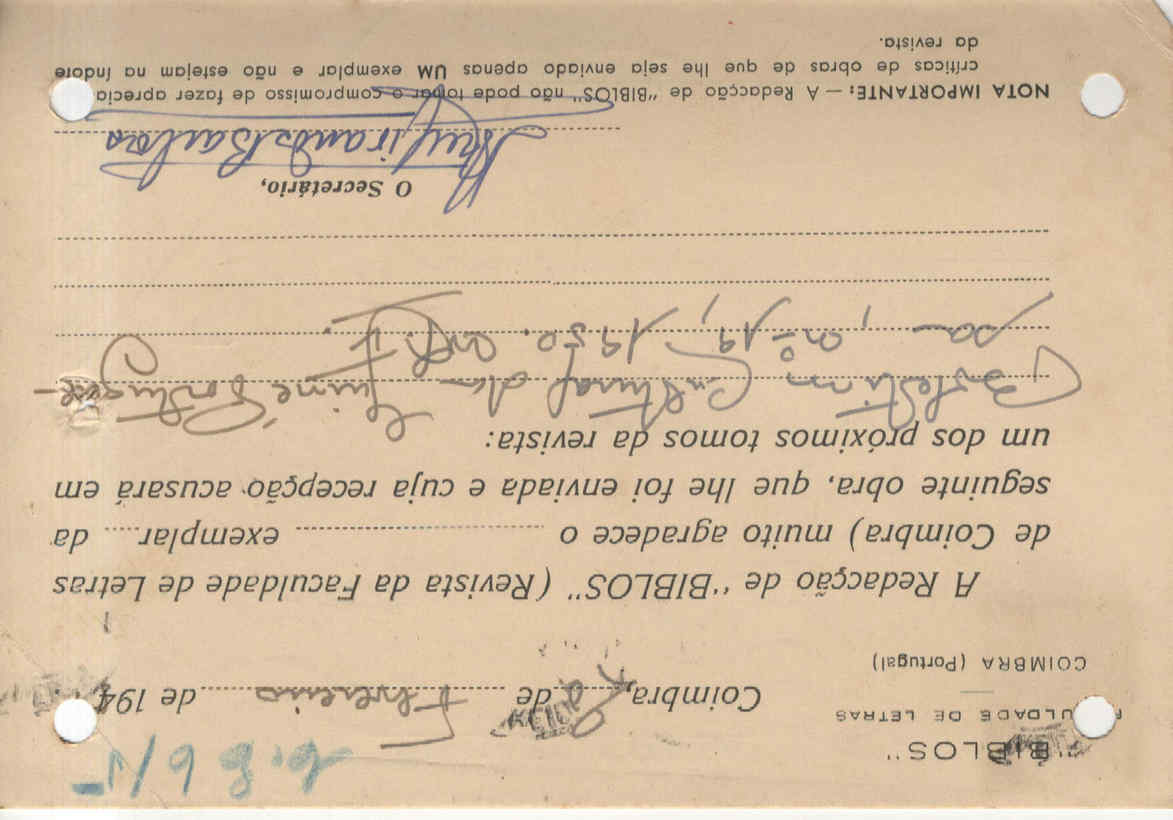 "BIBLOS"
FACULDADE DE LETRAS
COIMBRA (Portugal)
Coimbra, de Fevereiro de 194
A Redacção de "BIBLOS" (Revista da Faculdade de Letras
de Coimbra) muito agradece o exemplar da
seguinte obra, que lhe foi enviada e cuja recepção acusará em
um dos próximos tomos da revista:
Boletim Cultural da Guiné Portugue-
sa, nº 19, 1950.
O Secretário,
NOTA IMPORTANTE: — A Redacção de "BIBLOS" não pode tomar o compromisso de fazer aprecia
críticas de obras de que lhe seja enviado apenas UM exemplar e não estejam na índole
da revista.